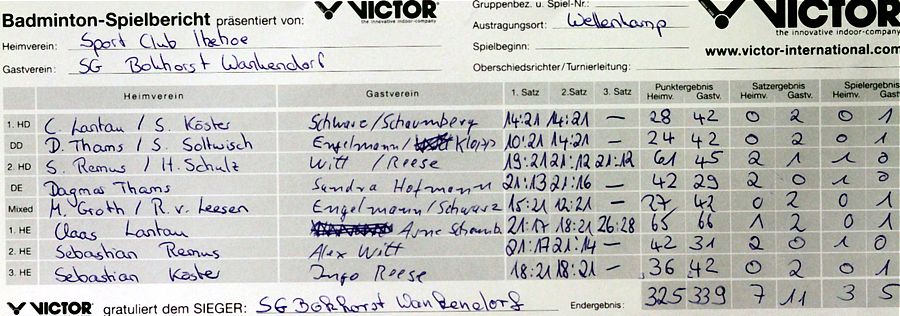 Badminton-Spielbericht präsentiert von: VICTOR the innovative indoor-company
Gruppenbez. u. Spiel-Nr.:
VICTOR the innovative indoor-company
Heimverein: Sport Club Itzehoe
Austragungsort: Wellenkamp
Gastverein: SG Bokhorst Wankendorf
Spielbeginn:
www.victor-international.com
Oberschiedsrichter/Turnierleitung:
Heimverein Gastverein 1. Satz 2. Satz 3. Satz Punktergebnis Heimv. Gastv. Satzergebnis Heimv. Gastv. Spielergebnis Heimv. Gastv.
1. HD C. Lantau / S. Köster Schwarz/Schaumberg 14:21 14:21 — 28 42 0 2 0 1
DD D. Thams / S. Soltwisch Engelmann/ 10:21 14:21 — 24 42 0 2 0 1
2. HD S. Remus / H. Schulz Witt / Reese 19:21 21:12 21:12 61 45 2 1 1 0
DE Dagmar Thams Sandra Hofmann 21:13 21:16 — 42 29 2 0 1 0
Mixed M. Groth / R. v. Leesen Engelmann/Schwarz 15:21 12:21 — 27 42 0 2 0 1
1. HE Claas Lantau Arne Schaumb. 21:17 18:21 26:28 65 66 1 2 0 1
2. HE Sebastian Remus Alex Witt 21:17 21:14 — 42 31 2 0 1 0
3. HE Sebastian Köster Ingo Reese 18:21 18:21 — 36 42 0 2 0 1
VICTOR gratuliert dem SIEGER: SG Bokhorst Wankendorf Endergebnis: 325 339 7 11 3 5